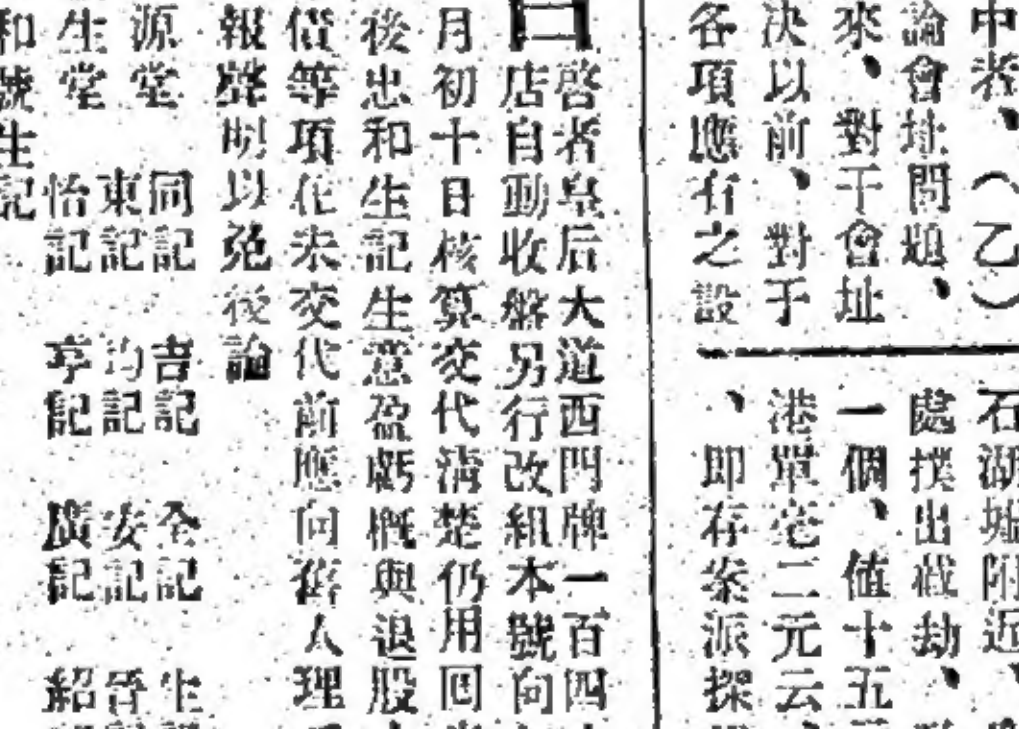 中者、(乙)
論會址問題、
來、對于會址
決以前、對于
各項應有之設
石湖墟附近、
處撲出截劫、
一個、值十五
港單壱二元云
、即存案派探
啓者皇后大道西門牌一百四
店自動收盤另行改組本號向
月初十日核算交代淸楚仍用囘
後忠和生記生意盈虧槪與退股
借等項在未交代前應向舊人理
報聲明以免後論
源堂
同記 吉記 全記 生
東記 均記 安記 晉
生堂
怡記 亨記 廣記 紹
和號生記